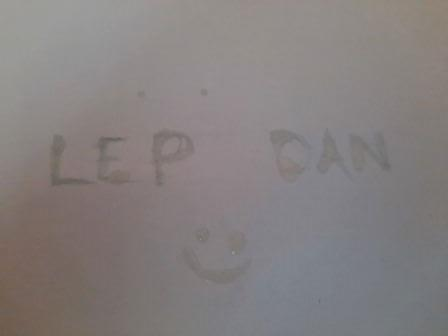 LEP DAN